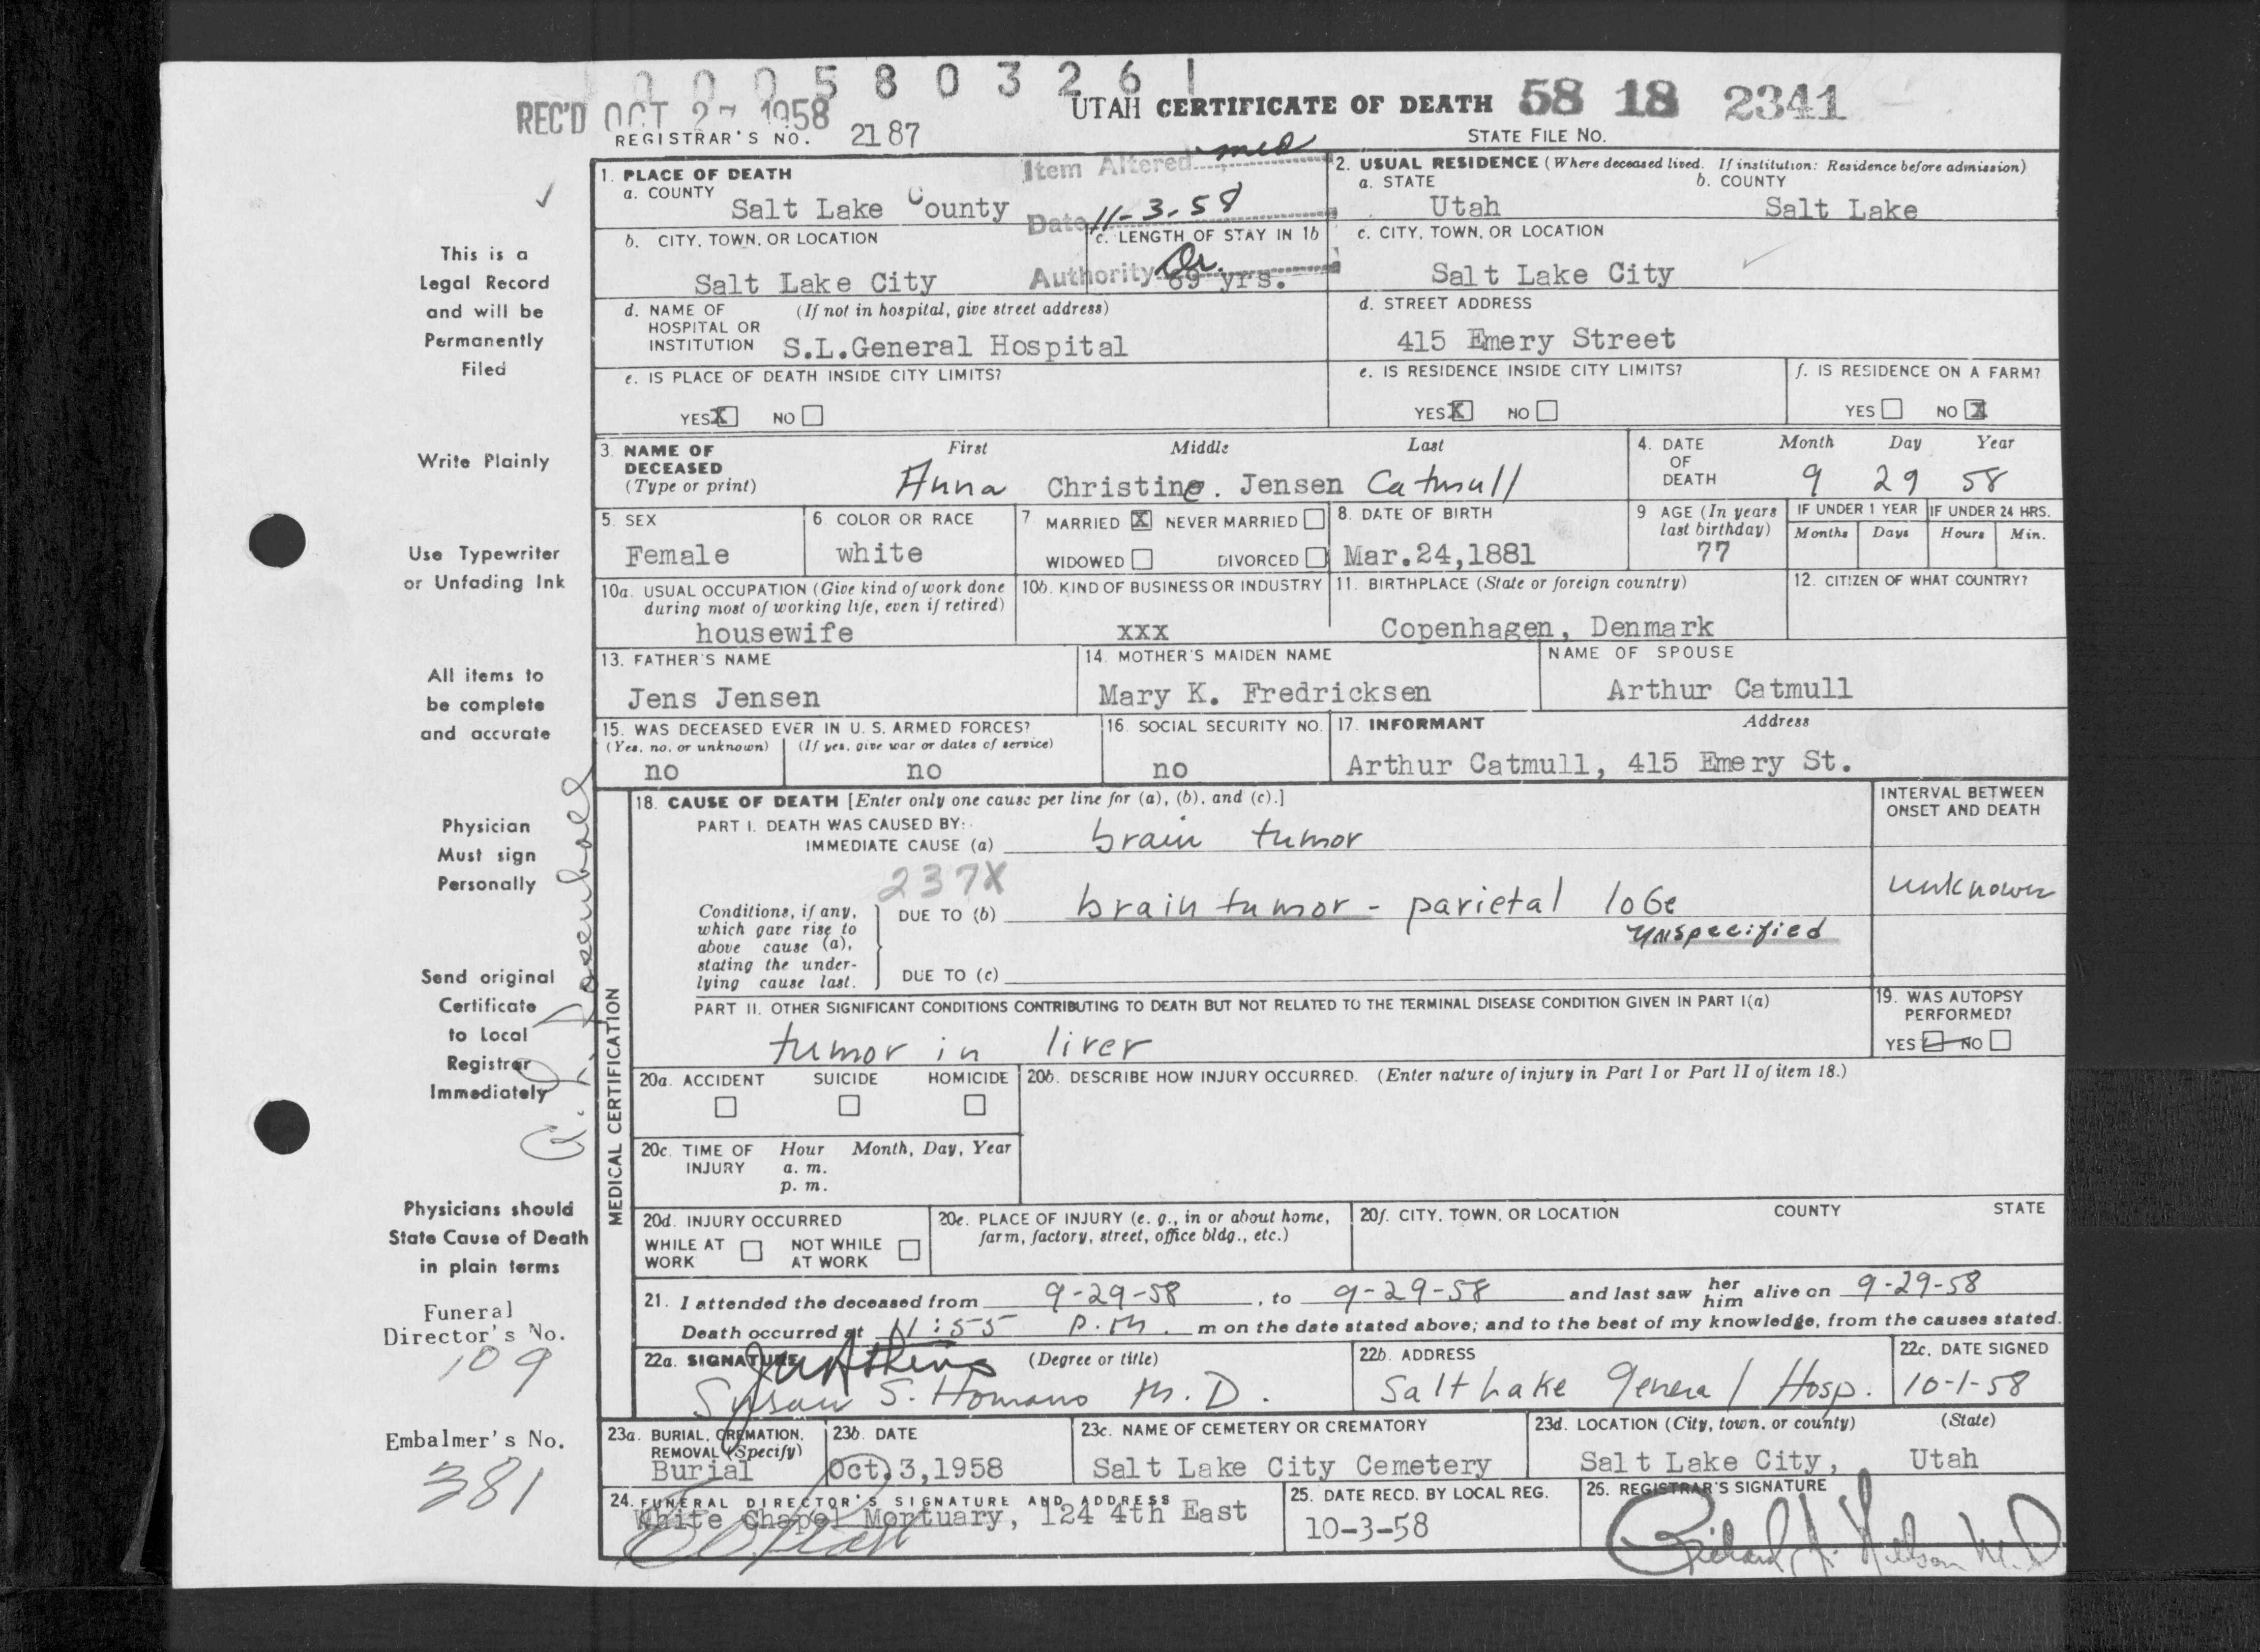 0005803261
REC'D OCT 27 1958
UTAH CERTIFICATE OF DEATH 58 18 2341
REGISTRAR'S NO. 2187
STATE FILE NO.
This is a
Legal Record
and will be
Permanently
Filed
Write Plainly
Use Typewriter
or Unfading Ink
All items to
be complete
and accurate
Physician
Must sign
Personally
Send original
Certificate
to Local
Registrar
Immediately
Physicians should
State Cause of Death
in plain terms
Funeral
Director's No.
109
Embalmer's No.
381
Item Altered med
Date 11-3-58
Authority Dr.
1. PLACE OF DEATH
a. COUNTY
Salt Lake County
b. CITY, TOWN, OR LOCATION
Salt Lake City
c. LENGTH OF STAY IN 1b
69 yrs.
d. NAME OF (If not in hospital, give street address)
HOSPITAL OR
INSTITUTION S.L.General Hospital
e. IS PLACE OF DEATH INSIDE CITY LIMITS?
YES X NO
2. USUAL RESIDENCE (Where deceased lived. If institution: Residence before admission)
a. STATE b. COUNTY
Utah Salt Lake
c. CITY, TOWN, OR LOCATION
Salt Lake City
d. STREET ADDRESS
415 Emery Street
e. IS RESIDENCE INSIDE CITY LIMITS?
YES X NO
f. IS RESIDENCE ON A FARM?
YES NO X
3. NAME OF DECEASED (Type or print)
First Middle Last
Anna Christine. Jensen Catmull
4. DATE OF DEATH
Month Day Year
9 29 58
5. SEX
Female
6. COLOR OR RACE
white
7 MARRIED X NEVER MARRIED
WIDOWED DIVORCED
8. DATE OF BIRTH
Mar.24,1881
9 AGE (In years last birthday)
77
IF UNDER 1 YEAR
Months Days
IF UNDER 24 HRS.
Hours Min.
10a. USUAL OCCUPATION (Give kind of work done
during most of working life, even if retired)
housewife
10b. KIND OF BUSINESS OR INDUSTRY
XXX
11. BIRTHPLACE (State or foreign country)
Copenhagen, Denmark
12. CITIZEN OF WHAT COUNTRY?
13. FATHER'S NAME
Jens Jensen
14. MOTHER'S MAIDEN NAME
Mary K. Fredricksen
NAME OF SPOUSE
Arthur Catmull
15. WAS DECEASED EVER IN U. S. ARMED FORCES?
(Yes, no, or unknown) (If yes, give war or dates of service)
no no
16. SOCIAL SECURITY NO.
no
17. INFORMANT Address
Arthur Catmull, 415 Emery St.
MEDICAL CERTIFICATION
18. CAUSE OF DEATH [Enter only one cause per line for (a), (b), and (c).]
PART I. DEATH WAS CAUSED BY:
IMMEDIATE CAUSE (a) brain tumor
237X
Conditions, if any,
which gave rise to
above cause (a),
stating the under-
lying cause last.
DUE TO (b) brain tumor - parietal lobe
unspecified
DUE TO (c)
INTERVAL BETWEEN
ONSET AND DEATH
unknown
PART II. OTHER SIGNIFICANT CONDITIONS CONTRIBUTING TO DEATH BUT NOT RELATED TO THE TERMINAL DISEASE CONDITION GIVEN IN PART I(a)
tumor in liver
19. WAS AUTOPSY
PERFORMED?
YES NO
20a. ACCIDENT SUICIDE HOMICIDE
20b. DESCRIBE HOW INJURY OCCURRED. (Enter nature of injury in Part I or Part II of item 18.)
20c. TIME OF INJURY
Hour Month, Day, Year
a. m.
p. m.
20d. INJURY OCCURRED
WHILE AT WORK NOT WHILE AT WORK
20e. PLACE OF INJURY (e. g., in or about home,
farm, factory, street, office bldg., etc.)
20f. CITY, TOWN, OR LOCATION COUNTY STATE
21. I attended the deceased from 9-29-58, to 9-29-58 and last saw her him alive on 9-29-58
Death occurred at 11:55 P.M. m on the date stated above; and to the best of my knowledge, from the causes stated.
22a. SIGNATURE (Degree or title)
Susan S. Homans M.D.
22b. ADDRESS
Salt Lake General Hosp.
22c. DATE SIGNED
10-1-58
23a. BURIAL, CREMATION,
REMOVAL (Specify)
Burial
23b. DATE
Oct.3,1958
23c. NAME OF CEMETERY OR CREMATORY
Salt Lake City Cemetery
23d. LOCATION (City, town, or county) (State)
Salt Lake City, Utah
24. FUNERAL DIRECTOR'S SIGNATURE AND ADDRESS
White Chapel Mortuary, 124 4th East
25. DATE RECD. BY LOCAL REG.
10-3-58
26. REGISTRAR'S SIGNATURE
Richard H. Nelson M.D